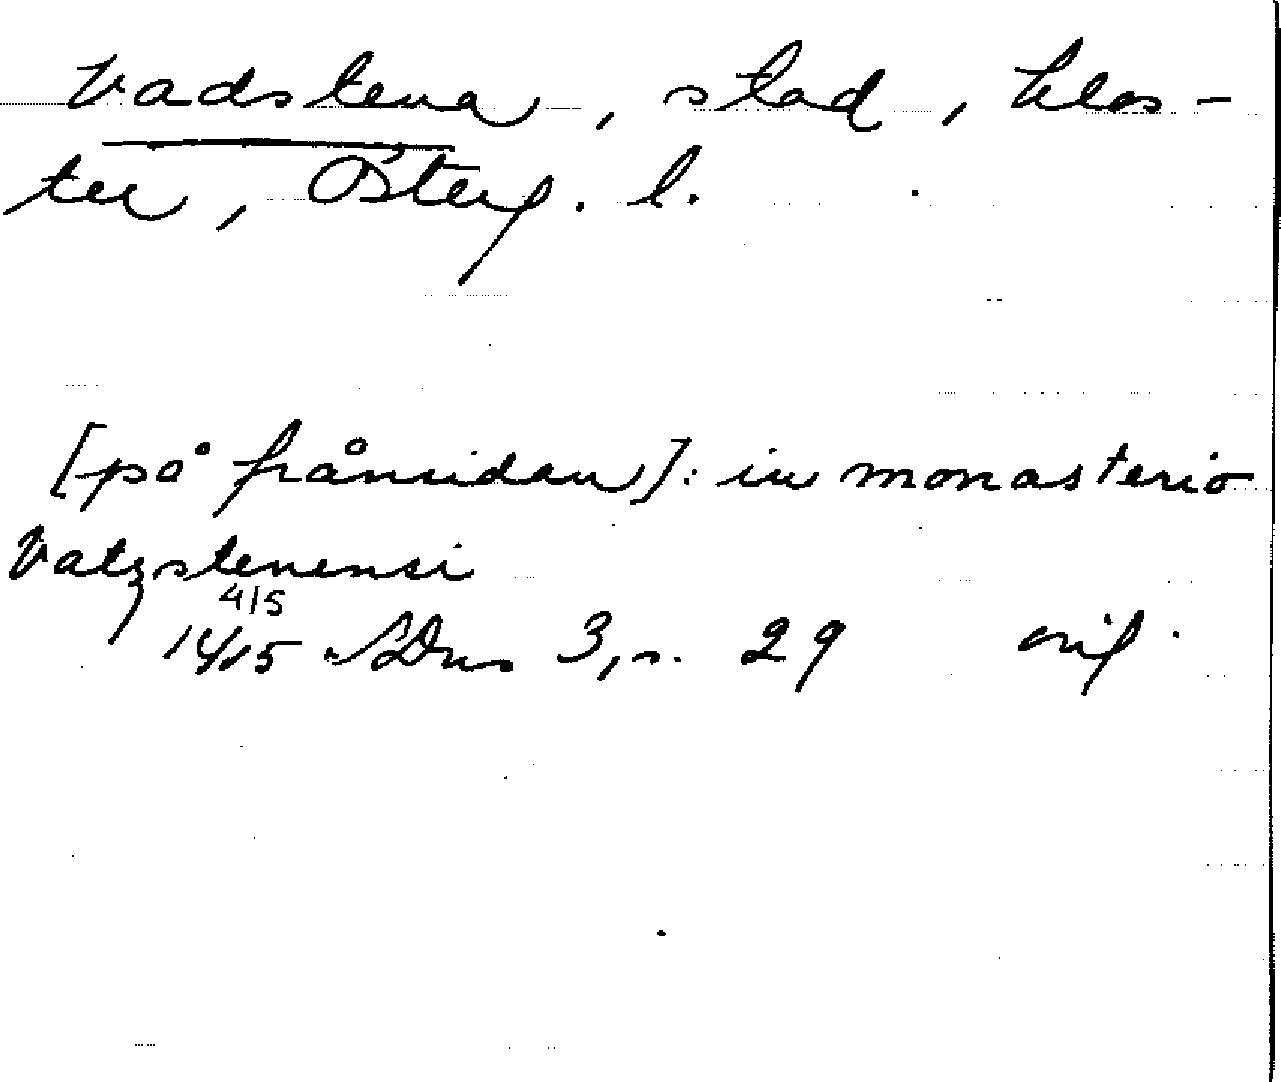 Vadstena, stad, klos-
ter, Österg. l.
[på frånsidan]: in monasterio
Vatzstenensi
4/5
1415 SDns 3, s. 29 orig.